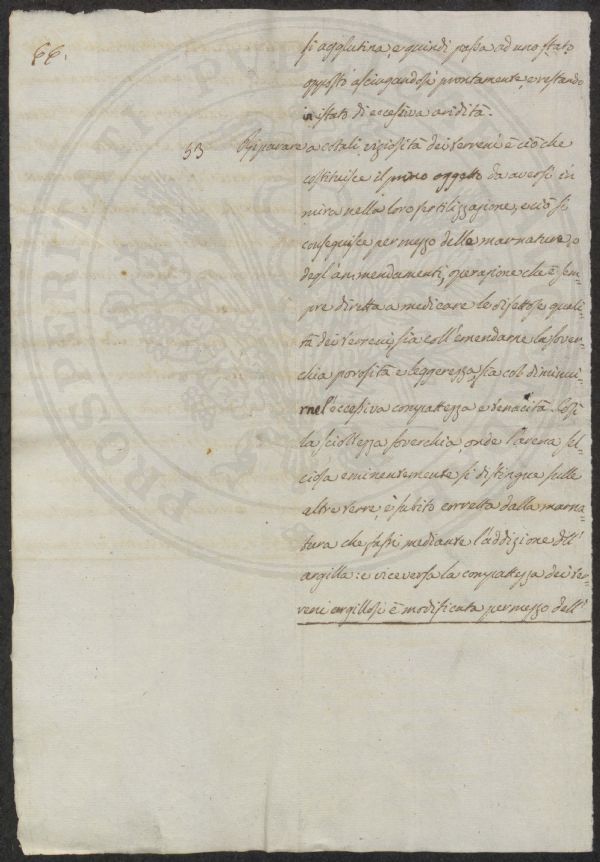 66.
si agglutina, e quindi passa ad uno stato
opposto asciugandosi prontamente, e restando
in istato di eccessiva aridità.
53 Riparare a cotali viziosità dei terreni è ciò che
costituisce il primo oggetto da aversi in
mira nella loro fertilizzazione, e ciò si
conseguisce per mezzo delle marnature, o
degl'ammendamenti, operazione che è sem-
pre diretta a medicare le difettose quali-
tà dei terreni, sia coll'emendarne la sover-
chia porosità e leggerezza, sia col diminui-
rne l'eccessiva compattezza e tenacità. Così
la scioltezza soverchia, onde l'arena sel-
ciosa eminentemente si distingue sulle
altre terre, è subito corretta dalla marna-
tura che fassi mediante l'addizione dell'
argilla: e viceversa la compattezza dei ter-
reni argillosi è modificata per mezzo dell'
PROSPERITATI PVB